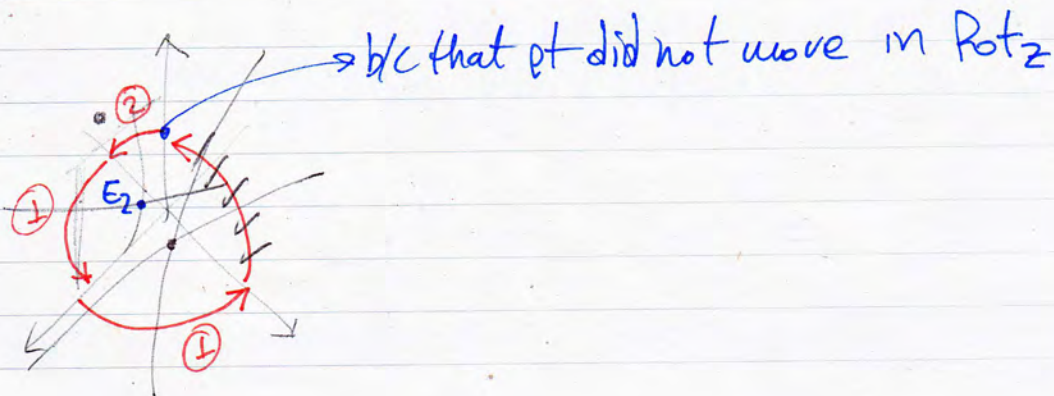 b/c that pt did not move in Rotz
②
E₂
①
①